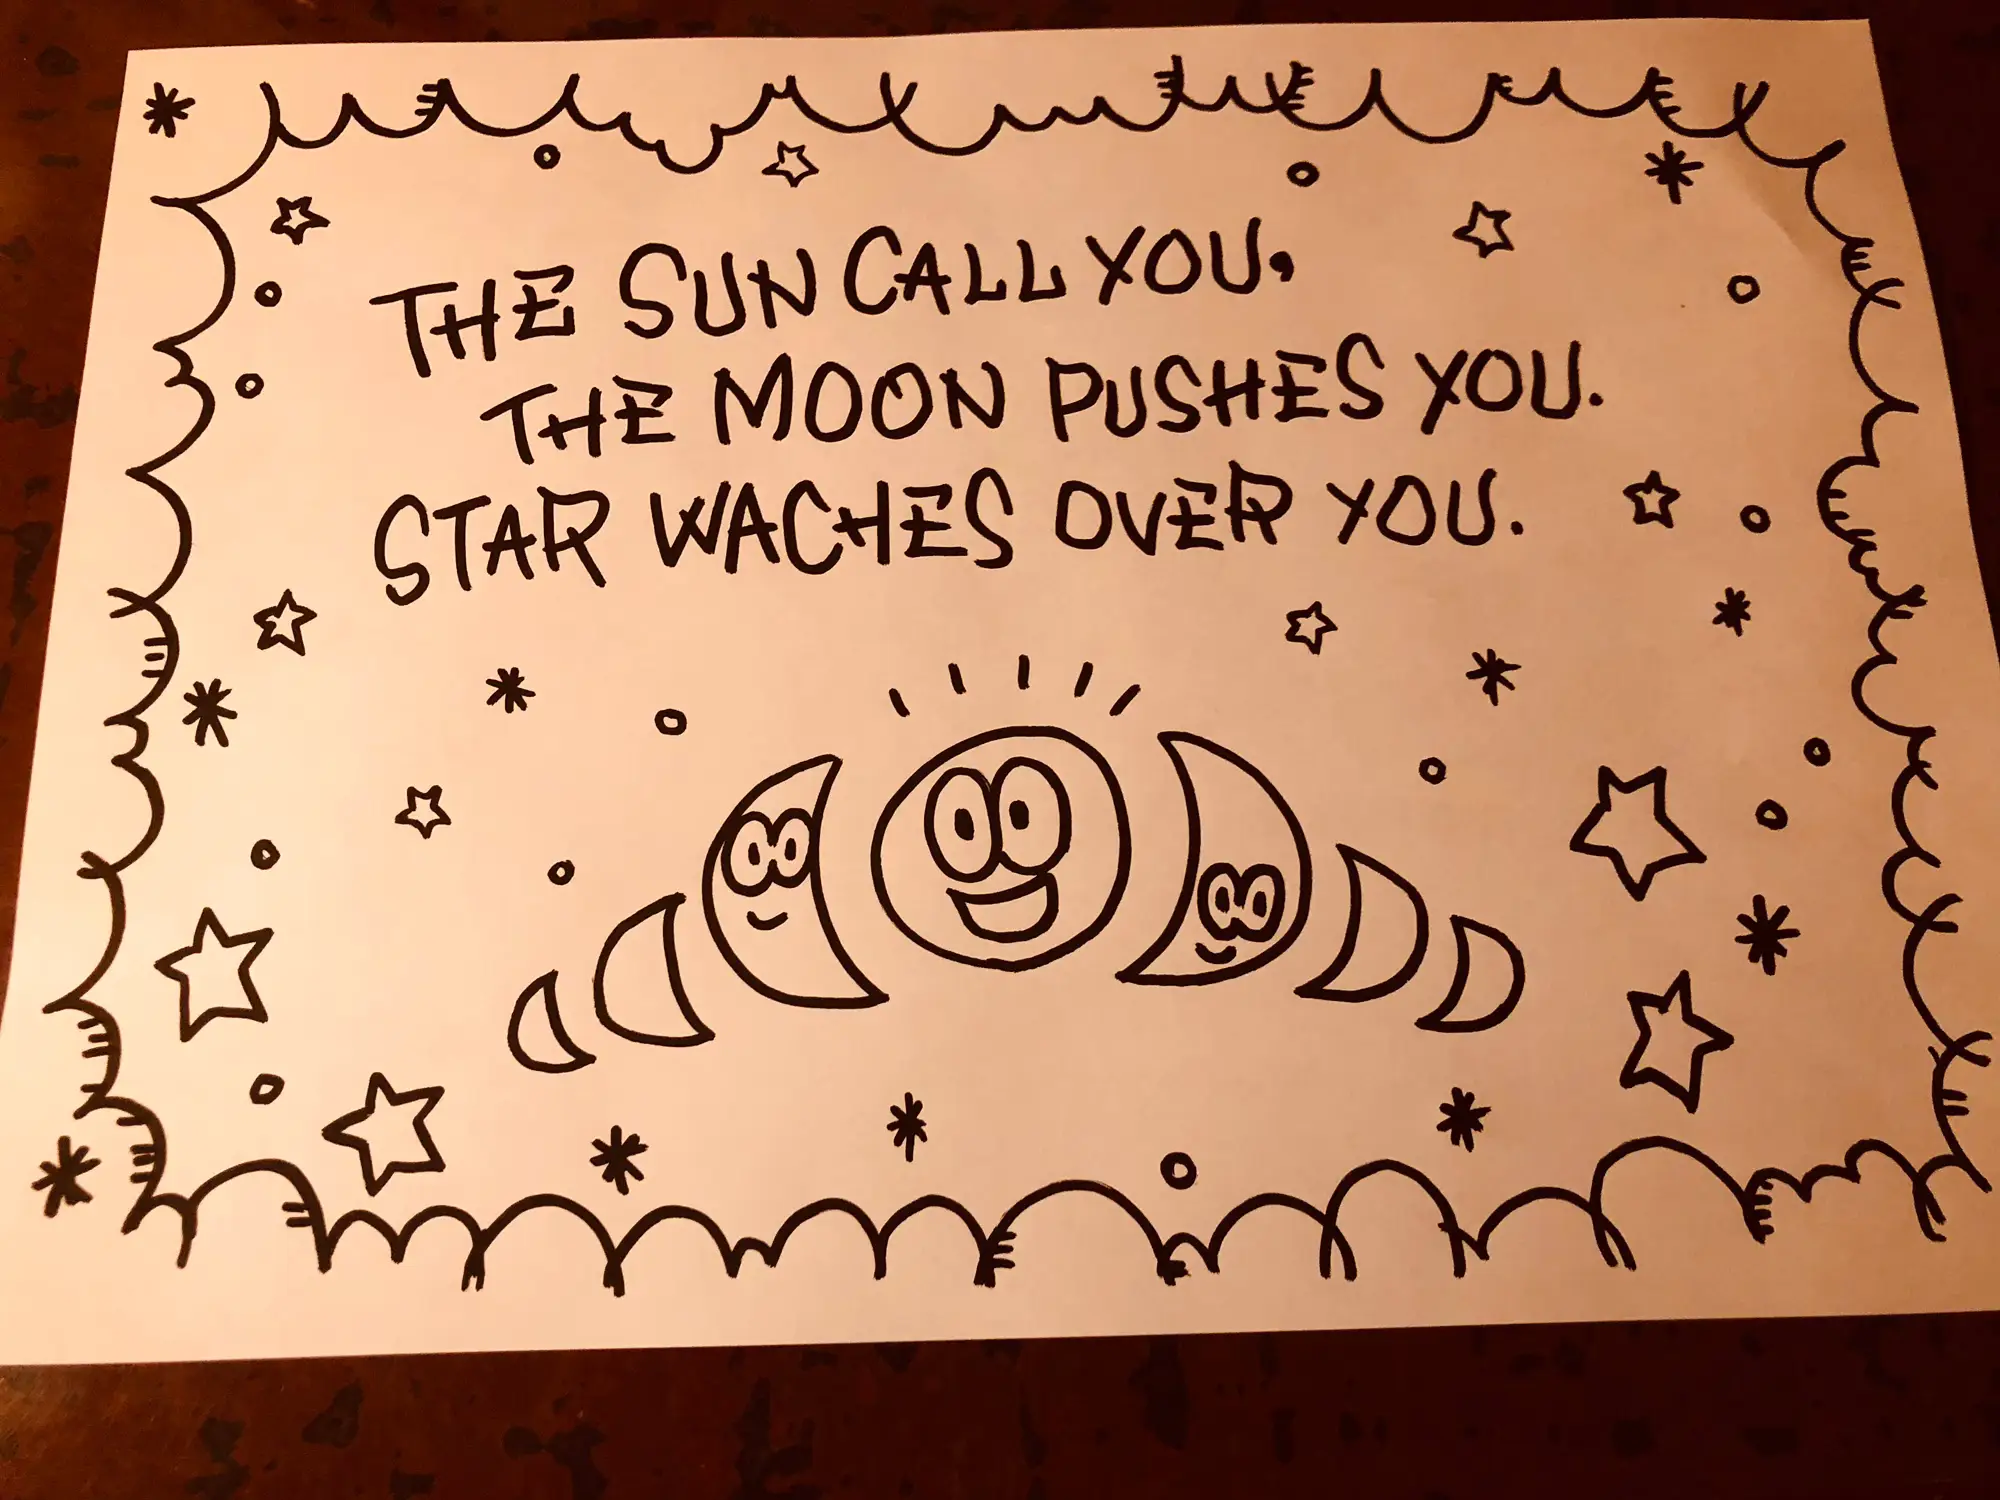 THE SUN CALL YOU,
THE MOON PUSHES YOU.
STAR WACHES OVER YOU.